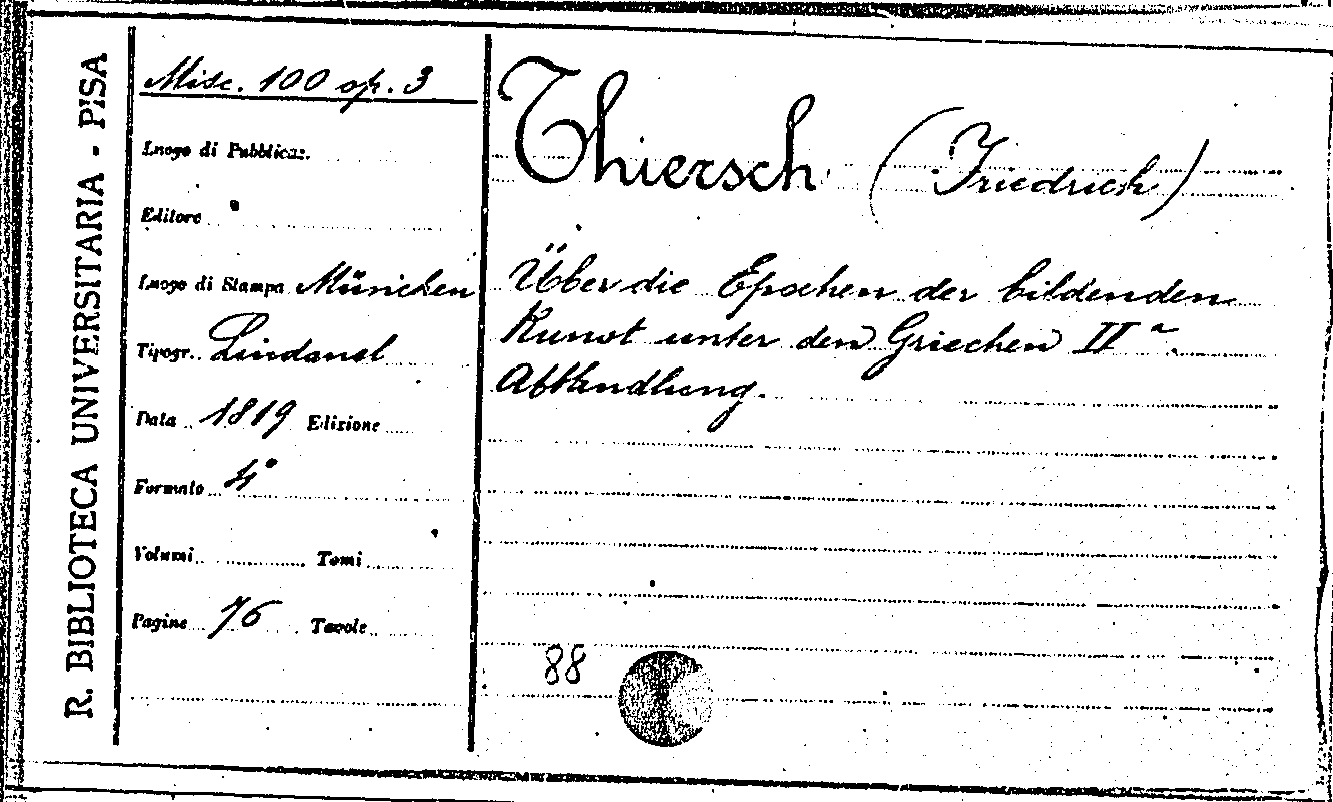 R. BIBLIOTECA UNIVERSITARIA - PISA
Misc. 100 op. 3
Luogo di Pubblicaz.
Editore
Luogo di Stampa München
Tipogr. Lindauel
Data 1819 Edizione
Formato 4°
Volumi Tomi
Pagine 76 Tavole
Thiersch (Friedrich)
Über die Epochen der bildenden
Kunst unter den Griechen IIª
Abhandlung.
88